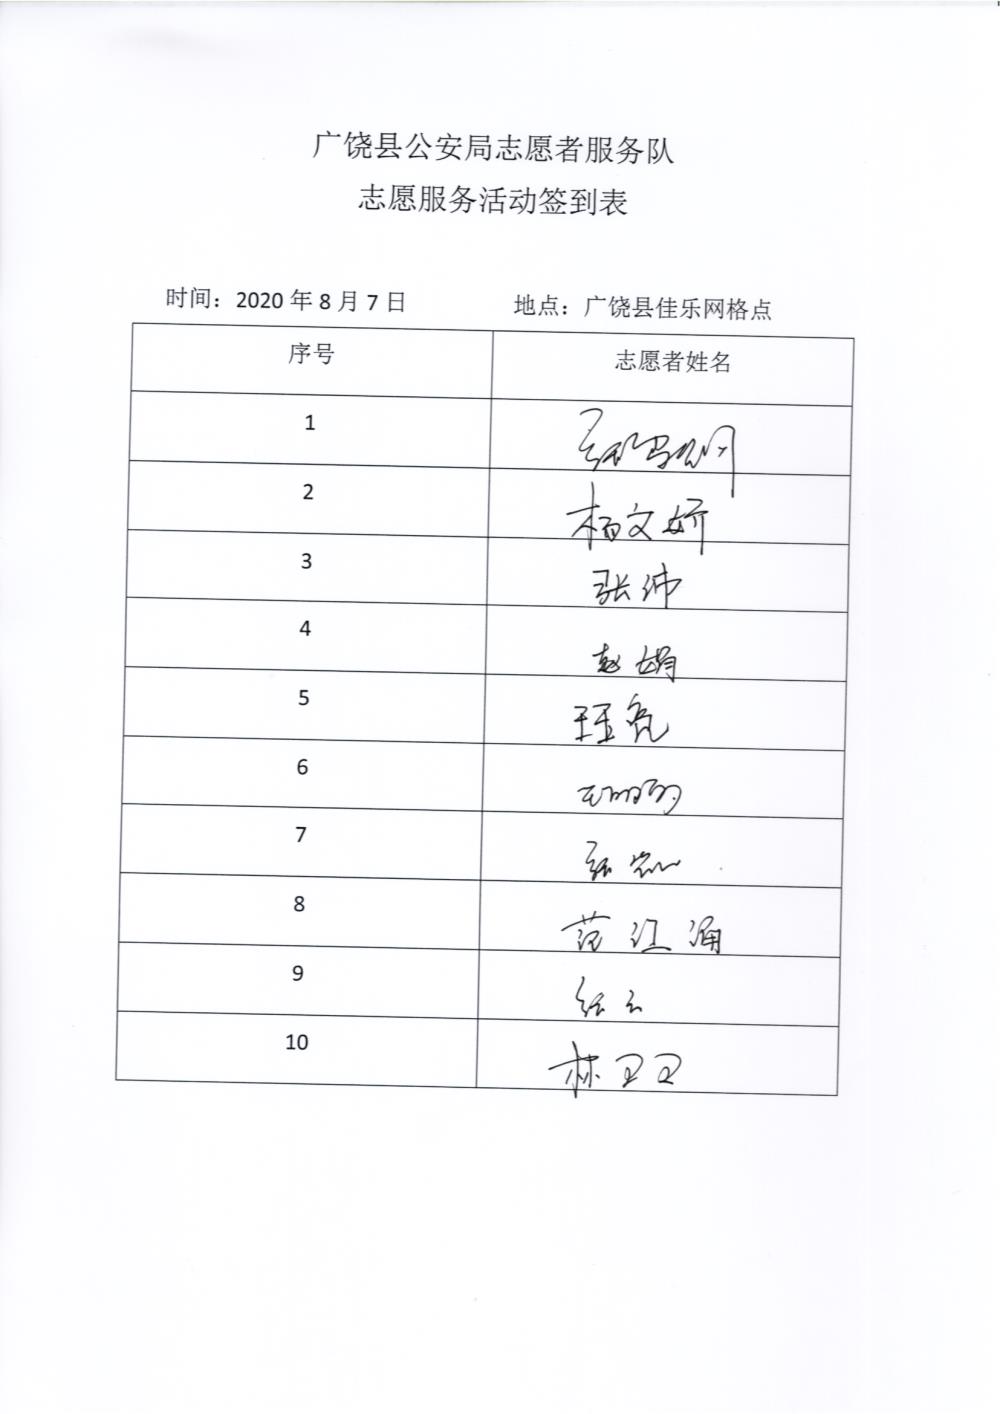 广饶县公安局志愿者服务队
志愿服务活动签到表
时间：2020年8月7日 地点：广饶县佳乐网格点
序号 志愿者姓名
1
2 杨文娇
3 张帅
4 赵娟
5 亮
6
7 张凯
8 范江涌
9 张云
10 林卫卫